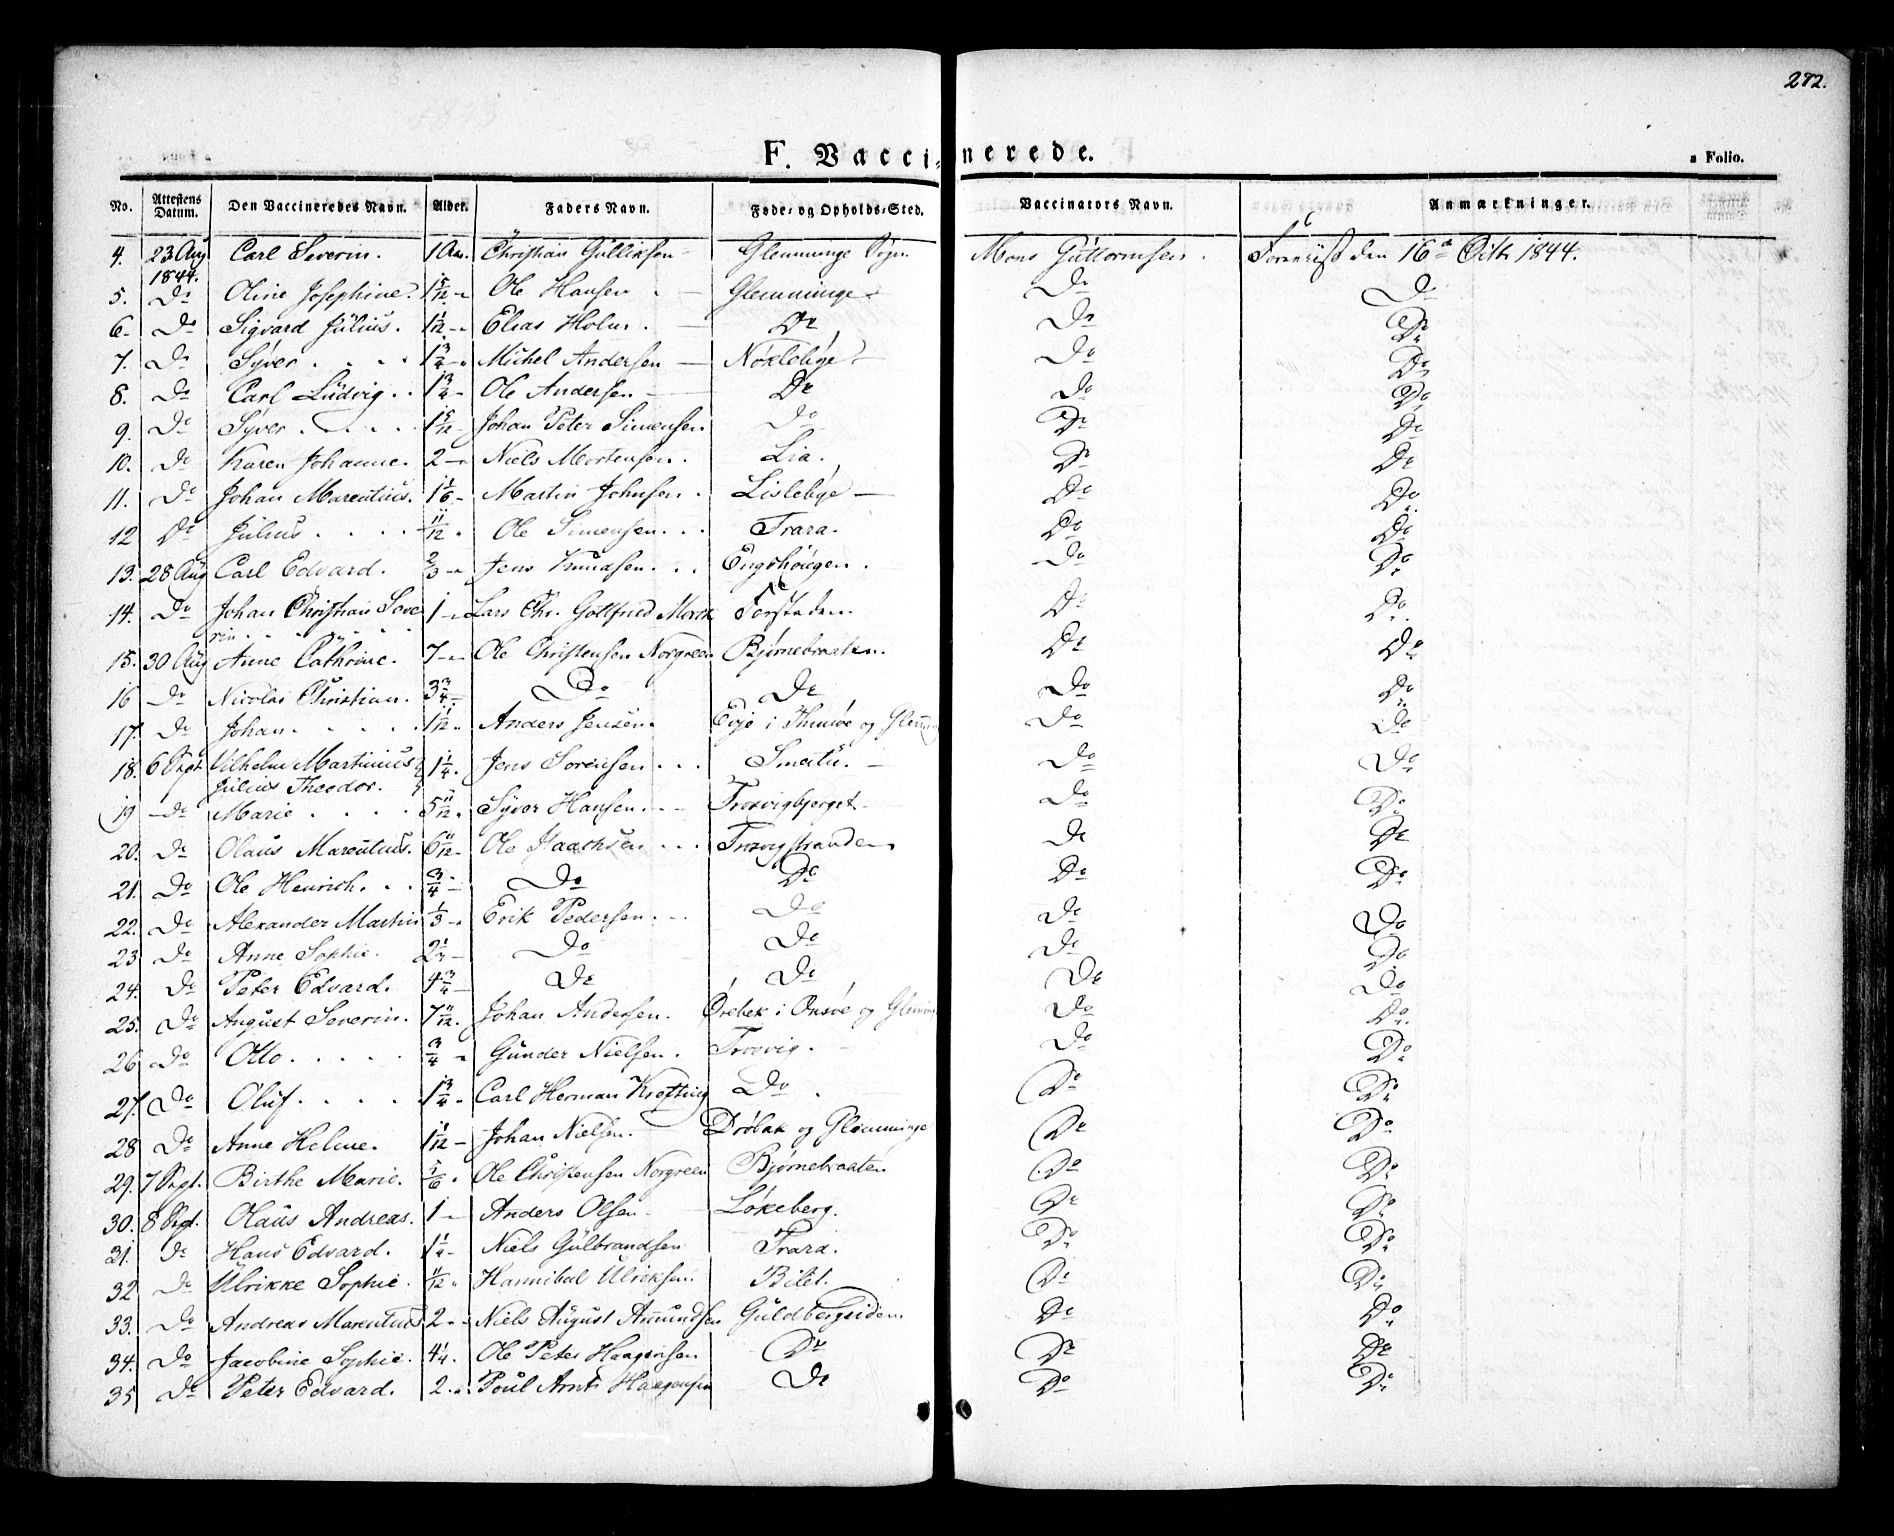 272.
F. Vaccinerede.
a Folio.
No. Attestens Datum. Den Vaccineredes Navn. Alder. Faders Navn. Føde- og Opholds-Sted. Vaccinators Navn. Anmærkninger.
4. 23 Aug 1844. Carl Severin. 1 Aar. Christian Gulliksen Glemminge Sogn. Mons Guttormsen. Forevist den 16de Octbr 1844.
5. Do Oline Josephine. 1 5/12 Ole Hansen Glemminge Do Do
6. Do Sigvard Julius. 1 1/12 Elias Holm. Do Do Do
7. Do Syver 1 3/4 Michel Andersen Nøklebye Do Do
8. Do Carl Ludvig 1 3/4 Ole Andersen Do Do Do
9. Do Syver 1 5/12 Johan Peter Simensen Do Do Do
10. Do Karen Johanne. 2 Niels Mortensen. Lia. Do Do
11. Do Johan Marentius. 1 1/6 Martin Johnsen. Lislebye Do Do
12 Do Julius 11/12 Ole Simensen Trara. Do Do
13. 28 Aug Carl Edvard. 2/3 Jens Knudsen Engehougen. Do Do
14. Do Johan Christian Seve 1 Lars Chr. Gottfried Mork Forstaden. Do Do
rin
15. 30 Aug Anne Cathrine. 7 Ole Christensen Norgreen Bjørnebraaten. Do Do
16 Do Nicolai Christian. 3 3/4 Do Do Do Do
17. Do Johan 1 1/12 Anders Jensen. Evje i Thunøe og Glemm Do Do
18. 6 Sept Vilhelm Martinius 1 1/4 Jens Sorensen Smertu. Do Do
Julius Theodor.
19 Do Marie 5 11/12 Syver Hansen Trosvigbjerget Do Do
20. Do Olaus Marentius. 6 11/12 Ole Isaachsen Trosvigstranden Do Do
21. Do Ole Henrich. 3/4 Do Do Do Do
22. Do Alexander Martin 1/3 Erik Pedersen. Do Do Do
23 Do Anne Sophie. 2 1/2 Do Do Do Do
24. Do Peter Edvard. 4 3/4 Do Do Do Do
25. Do August Severin. 7 11/12. Johan Andersen. Ørebek i Onsøe og Glemm Do Do
26 Do Otto 3/4 Gunder Nielsen. Trosvig. Do Do
27. Do Oluf 1 3/4 Carl Herman Krefting Do Do Do
28 Do Anne Helene. 1 1/12 Johan Nielsen. Drøbak og Glemminge Do Do
29. 7 Sept. Birthe Marie. 5/6 Ole Christensen Norgreen Bjørnebraaten Do Do
30. 8 Sept. Olaus Andreas. 1 Anders Olsen Løkeberg. Do Do
31. Do Hans Edvard. 1 1/4 Niels Gulbrandsen Trara. Do Do
32 Do Ulrikke Sophie. 11/12 Hannibal Ulriksen. Bilet. Do Do
33. Do Andreas Marentius 2 Niels August Amundsen Guldbergsiden. Do Do
34. Do Jacobine Sophie. 4 1/4. Ole Peter Haagensen Do Do Do
35 Do Peter Edvard. 2. Poul Arnt Haagensen Do Do Do